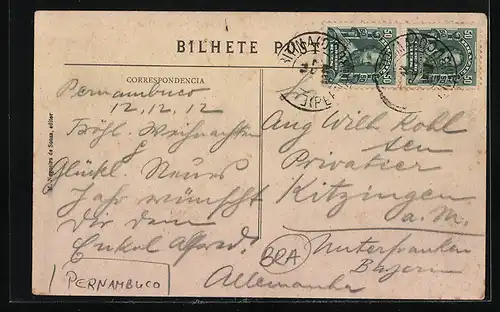 BILHETE
CORRESPONDENCIA
Pernambuco
12.12.12
Fröhl. Weihnachten
Glückl. Neues
Jahr wünscht
Dir dein
Enkel Alfred.
Aug Wilh Kohl
sen
Privatier
Kitzingen
a.M.
Unterfranken
Bayern
Allemanha
BRA
PERNAMBUCO
de Souza, editor
50
50
50
50